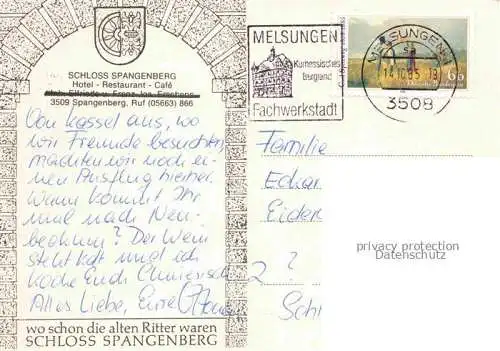 SCHLOSS SPANGENBERG
Hotel - Restaurant - Café
3509 Spangenberg, Ruf (05663) 866
Von Kassel aus, wo
wir Freunde besuchten,
machten wir noch ei-
nen Ausflug hierher.
Wann kommt Ihr
mal nach Neu-
? Der Wein
steht kalt und ich
koche Euch Chinesisch
Alles Liebe, Eure
wo schon die alten Ritter waren
SCHLOSS SPANGENBERG
MELSUNGEN
Kurhessisches
Bergland
Fachwerkstadt
MELSUNGEN 1
14.10.85-18
3508
Familie
Eckar
Eider
?
2
Schl
privacy protection
Datenschutz